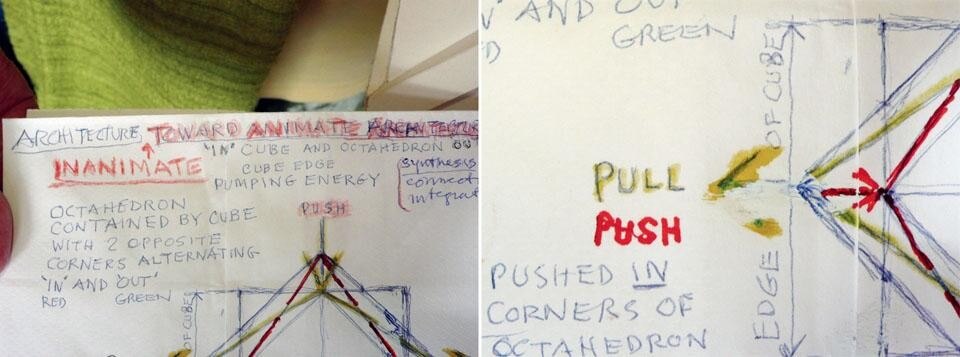 ARCHITECTURE TOWARD ANIMATE ARCHITECTUR
INANIMATE
"IN" CUBE AND OCTAHEDRON
CUBE EDGE
PUMPING ENERGY
synthesis
connect
integrat
PUSH
OCTAHEDRON
CONTAINED BY CUBE
WITH 2 OPPOSITE
CORNERS ALTERNATING
"IN" AND "OUT"
RED GREEN
OF CUBE
AND OUT
GREEN
PULL
PUSH
EDGE OF CUBE
PUSHED IN
CORNERS OF
OCTAHEDRON